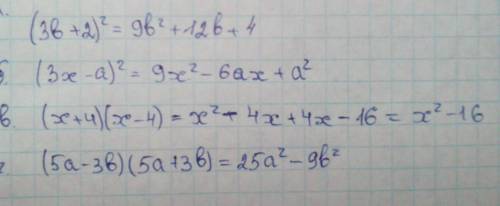 (3b+2)² = 9b² + 12b + 4
б. (3x-a)² = 9x² - 6ax + a²
в. (x+4)(x-4) = x² - 4x + 4x - 16 = x² - 16
г (5a-3b)(5a+3b) = 25a² - 9b²